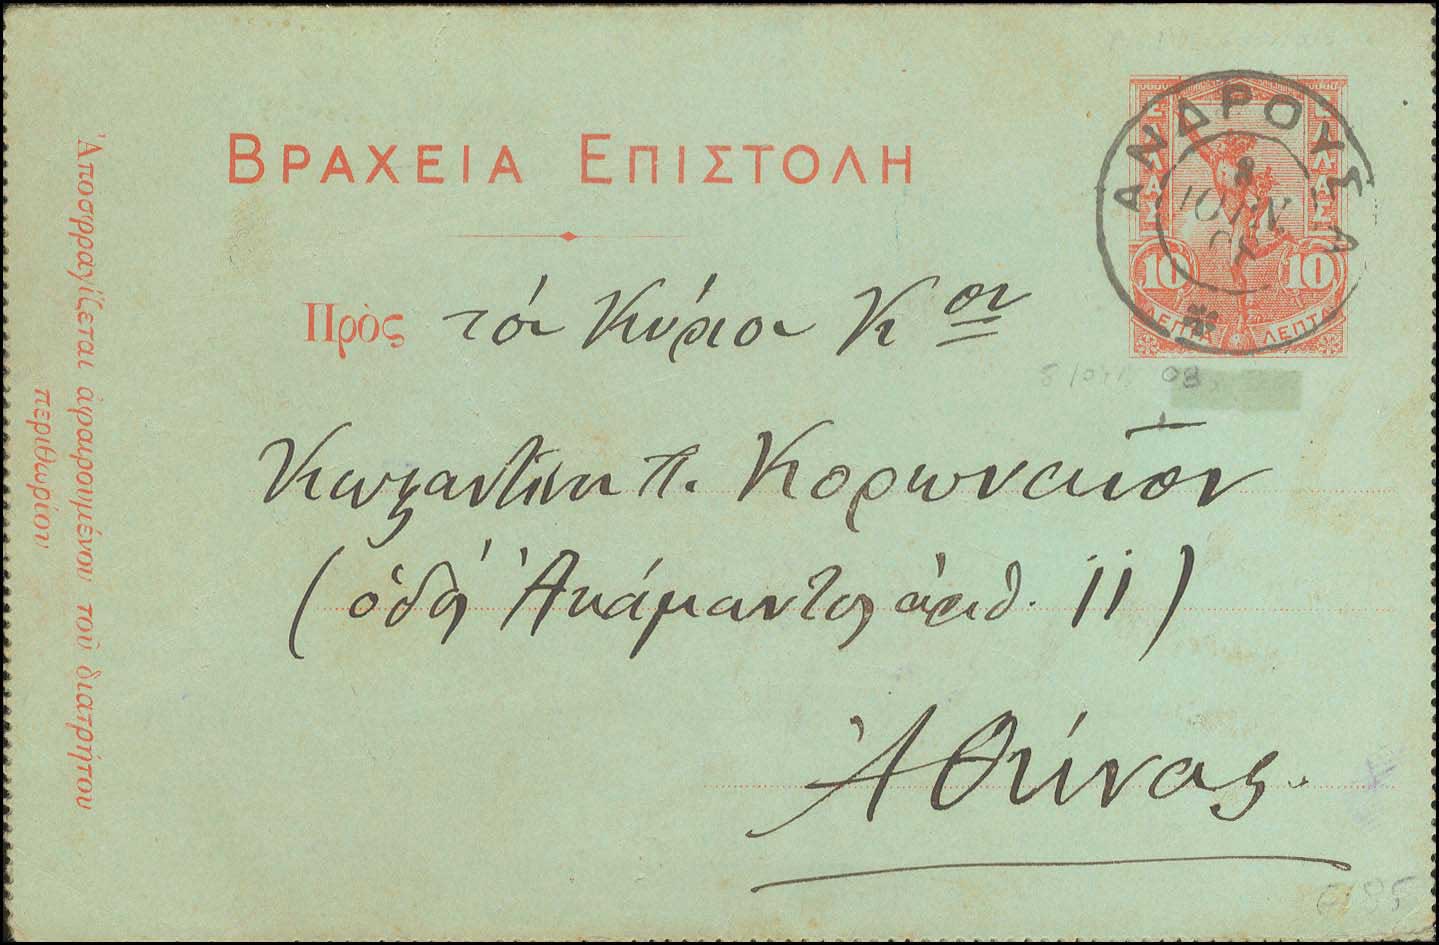 ΒΡΑΧΕΙΑ ΕΠΙΣΤΟΛΗ
ΕΛΛΑΣ
ΕΛΛΑΣ
10 10
ΛΕΠΤΑ ΛΕΠΤΑ
ΑΝΔΡΟΥΣΑ
8
ΙΟΥΝ
Πρὸς τὸν Κύριον Κον
Κωνσταντῖνον Π. Κορωναῖον
(ὁδὸς Ἀκάμαντος ἀριθ. 11)
Ἀθήνας.
Ἀποσφραγίζεται ἀφαιρουμένου τοῦ διατρήτου
περιθωρίου
08